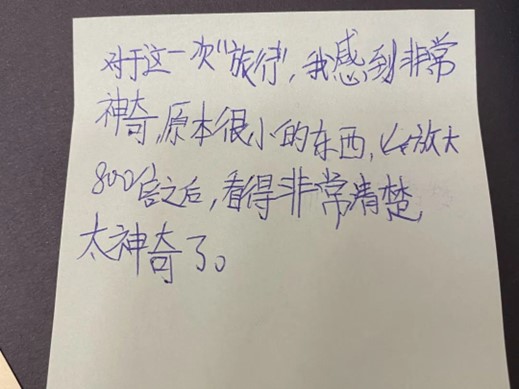 对于这一次“旅行”,我感到非常
神奇,原本很小的东西,放大
800倍之后,看得非常清楚
太神奇了。